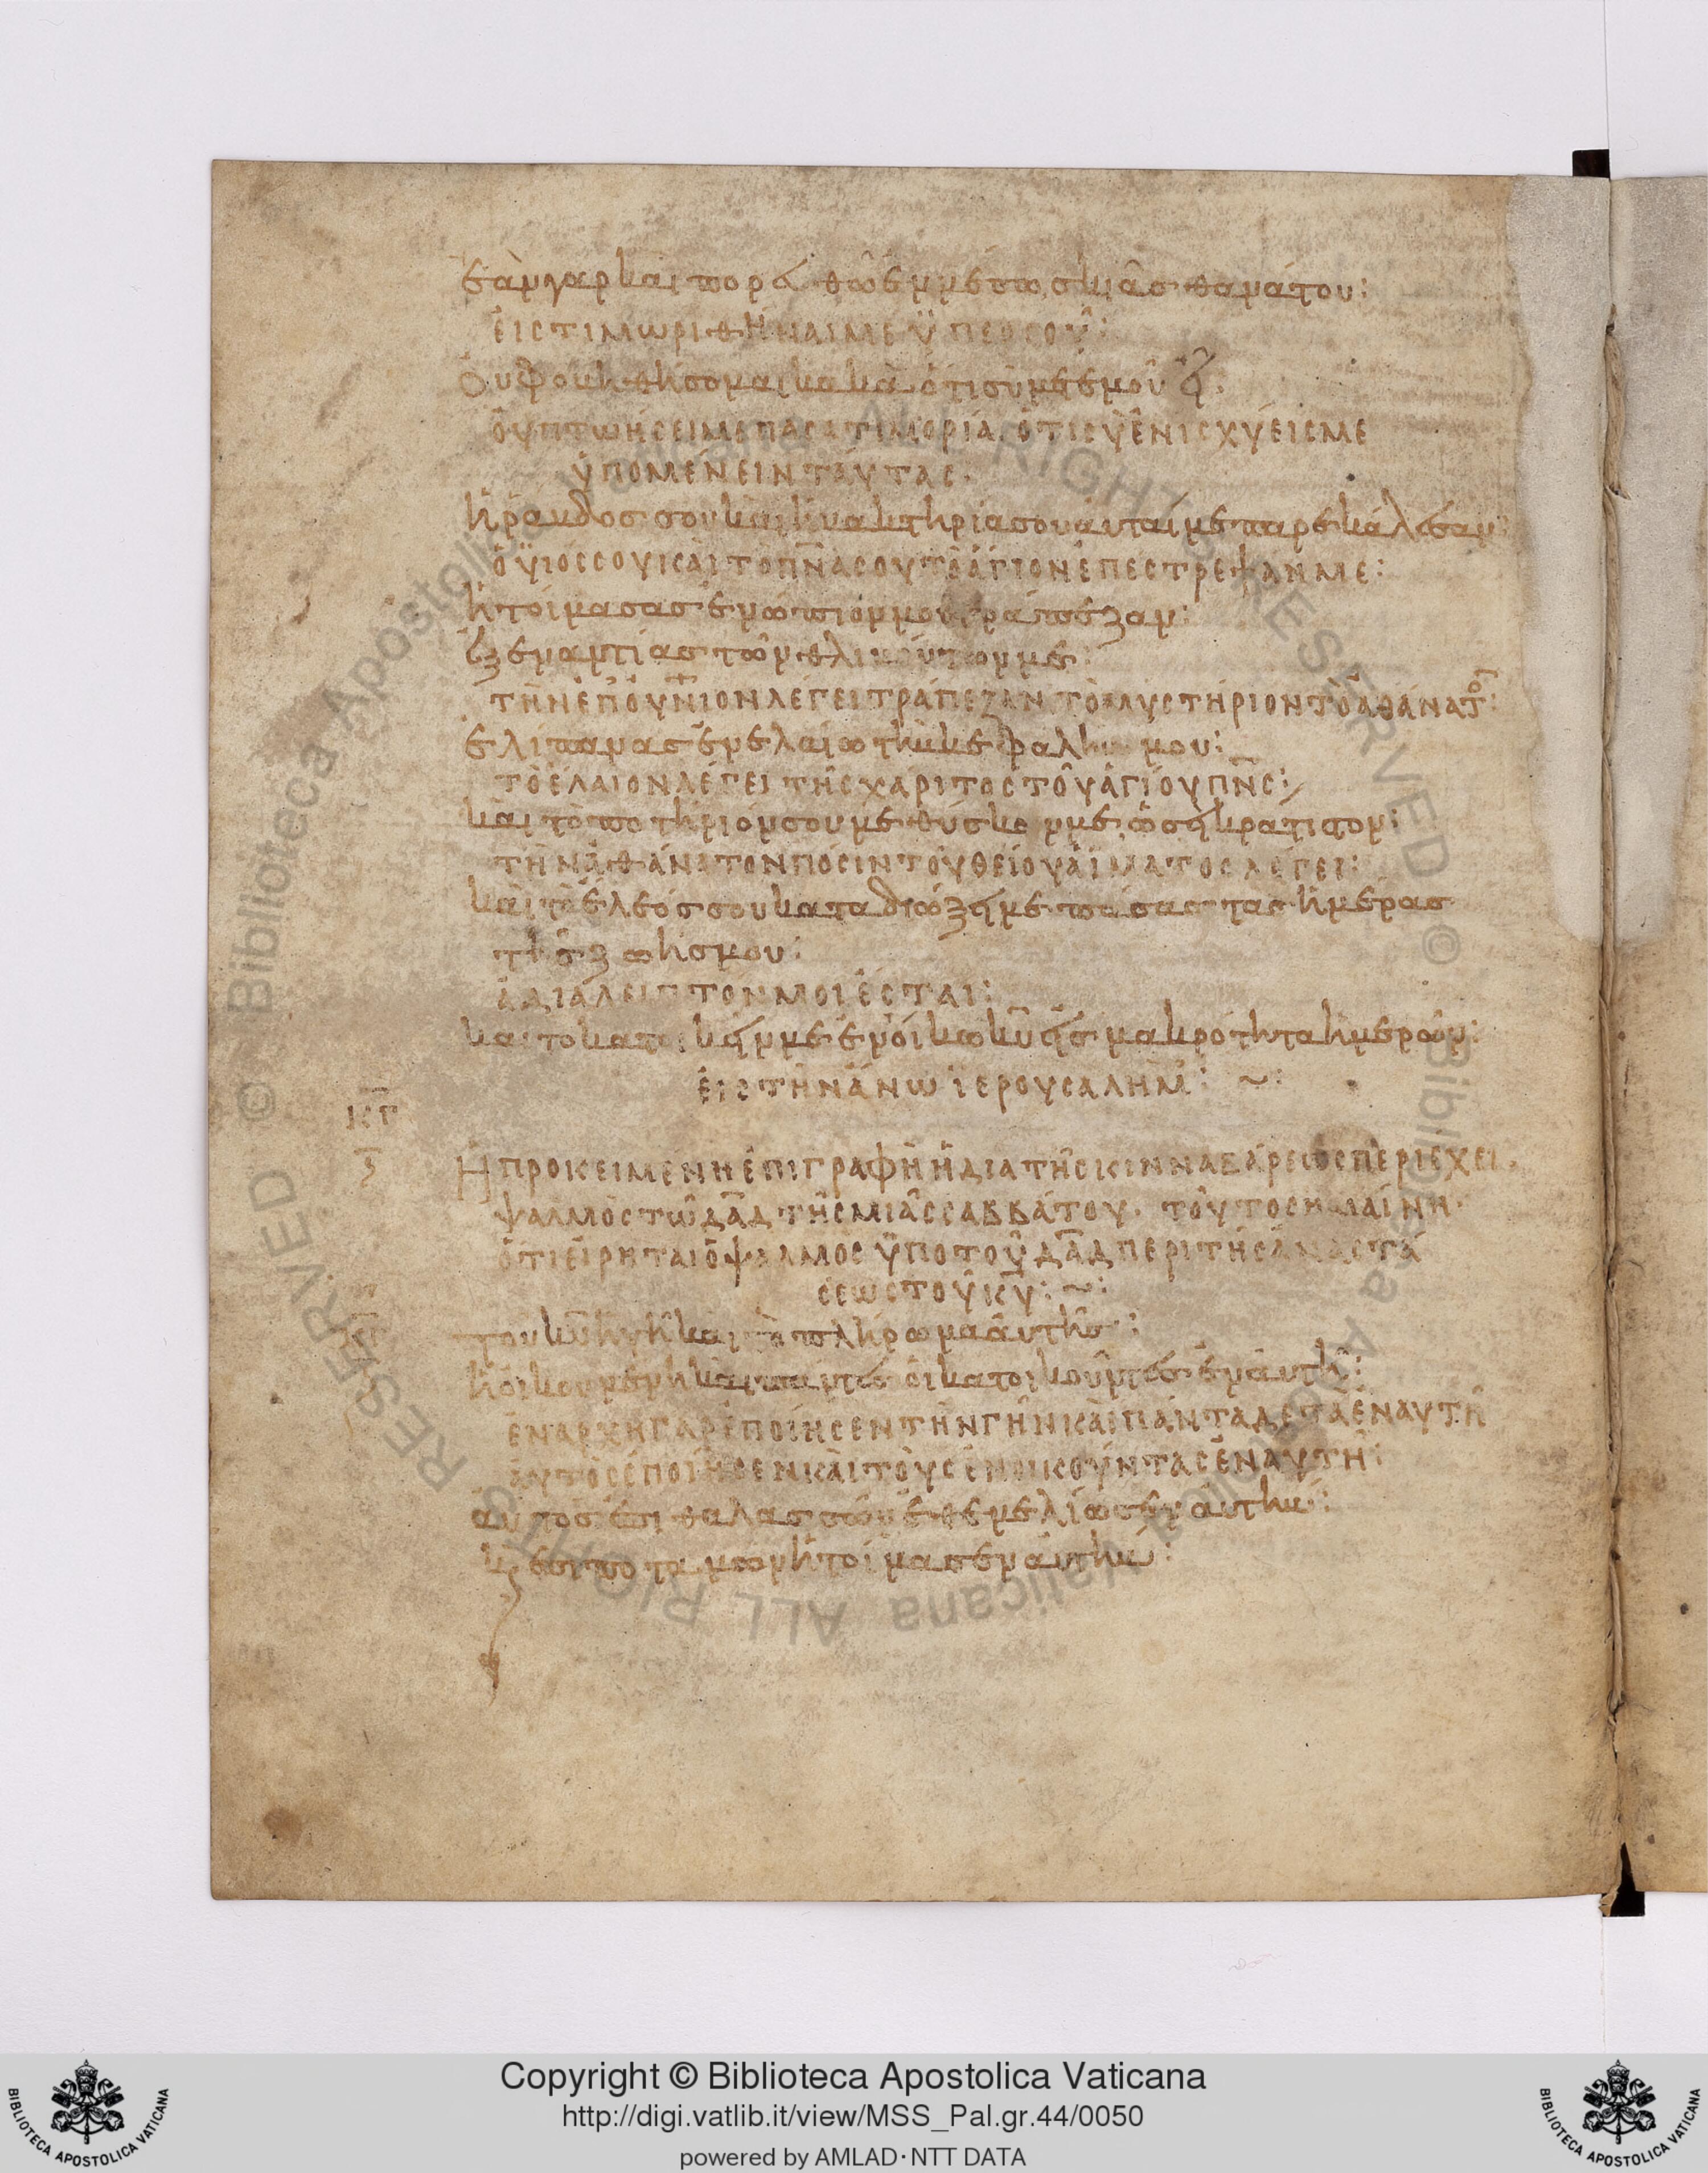 ἐὰν γαρ καὶ πορευθῶ ἐν μέσω σκιᾶσ θανάτου:
ἐις τιμωρισθῆναι με ϋπερ σοῦ:
Ου φοβηθήσομαι κακὰ ὅτι σὺ μετ ἐμοῦ εἶ.
ὀυ πτωήσει με πασα τιμορία, ὅτι σὺ ἐνισχύεις με
ὑπομένειν τάυτας.
ἡ ράβδοσ σου καὶ ἡ βακτηρία σου ἁυταί με παρεκάλεσαν:
ὁ υἱός σου κὰι τὸ πν̅α σου τὸ ἅγιον ἐπεστρεψαν με:
ἡτοίμασασ ἐνώπιόν μου τράπεζαν:
ἐξεναντίασ τῶν θλιβόντων με:
τὴν ἐπουν̅ιον λέγει τράπεζαν, τὸ μυστήριον τὸ ἀθάνατο̅:
ἐλίπανασ ἐν ελαίω τὴν κεφαλήν μου:
τὸ ἔλαιον λέγει τῆς χάριτος τοῦ ἁγίου πν̅ς:
καὶ τὸ ποτήριόν σου μεθύσκον με, ὡσεὶ κρατιστον:
τὴν ἀθάνατον πόσιν τοῦ θείου ἁίματος λέγει:
καὶ τὸ ἔλεόσ σου καταδιώξει με πάσασ τασ ἡμέρασ
τῆσ ζωῆσ μου:
ἀδιάλειπτόν μοι ἔσται:
και το κατοικεῖν με ἐν οίκω κ̅υ εἰσ μακρότητα ἡμερῶν:
ἐις τὴν ἄνω ϊερουσαλὴμ: ~:
κ̅γ̅
Ἡ προκειμένη ἐπιγραφὴ ἡ δια τῆς κινναβάρεως περιέχει,
ψαλμὸς τῶ δ̅α̅δ̅ τῆς μιᾶς σαββάτου. τοῦτο σημαίνη.
ὅτι ἐίρηται ὁ ψαλμὸς ϋπο τοῦ δ̅α̅δ̅ περι τῆς ἀναστά
σεως τοῦ κ̅υ̅: ~:
του κ̅υ ἡ γῆ και τὸ πλήρωμα ἀυτῆσ:
ἡ οικουμένη κὰι πάντεσ ὁι κατοικοῦντεσ ἐν ἀυτῆ:
ἐν αρχη γαρ ἐποίησεν τὴν γῆν κὰι πάντα δε τα ἐν αυτῆ
ἀυτὸς ἐποίησεν κὰι τὸυς ἐνοικοῦντας ἐν αυτῆ:
ἀυτὸσ ἐπι θαλασσῶν ἐθεμελίωσεν ἀυτὴν:
κ̀ ἐπι ποταμῶν ἡτοίμασεν ἀυτὴν:
Copyright © Biblioteca Apostolica Vaticana
http://digi.vatlib.it/view/MSS_Pal.gr.44/0050
powered by AMLAD·NTT DATA